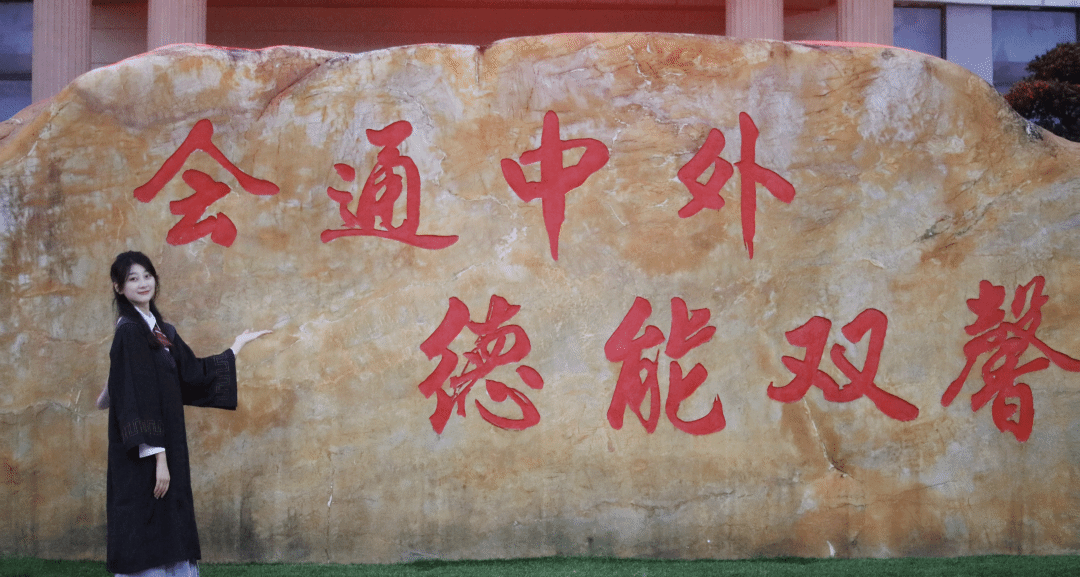 会通中外
德能双馨